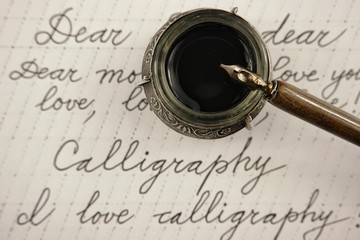 Dear dear
Dear mo love you
love, lo
Calligraphy
I love calligraphy.